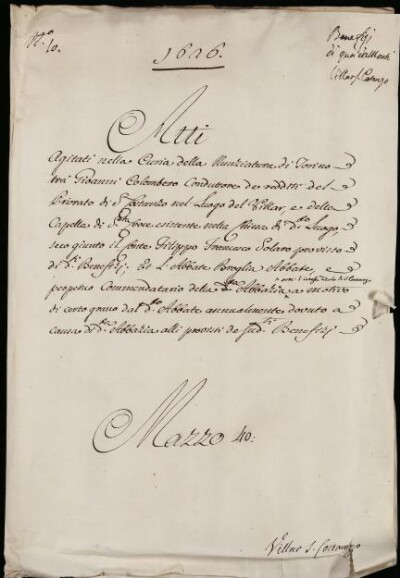 N.° 10.
Benefizj
di qua da Monti
Villar S. Costanzo
1626.
Atti
Agitati nella Curia della Nunziatura di Torino
trà Gioanni Colombero Conduttore de redditi del
Priorato di S. Costanzo nel Luogo del Villar, e della
Capella di S. existente nella Chiesa di d.to Luogo
seco giunto il Conte Filippo Francesco Solaro provvisto
di d.i Benefizj. Et L'Abbate Broglia Abbate, e
perpetuo Commendatario della Abbazia a motivo
di certo grano dal d.to Abbate annualmente dovuto a
causa di d.ta Abbazia alli provisti de sud.ti Benefizj
Mazzo 40:
Villar S. Costanzo